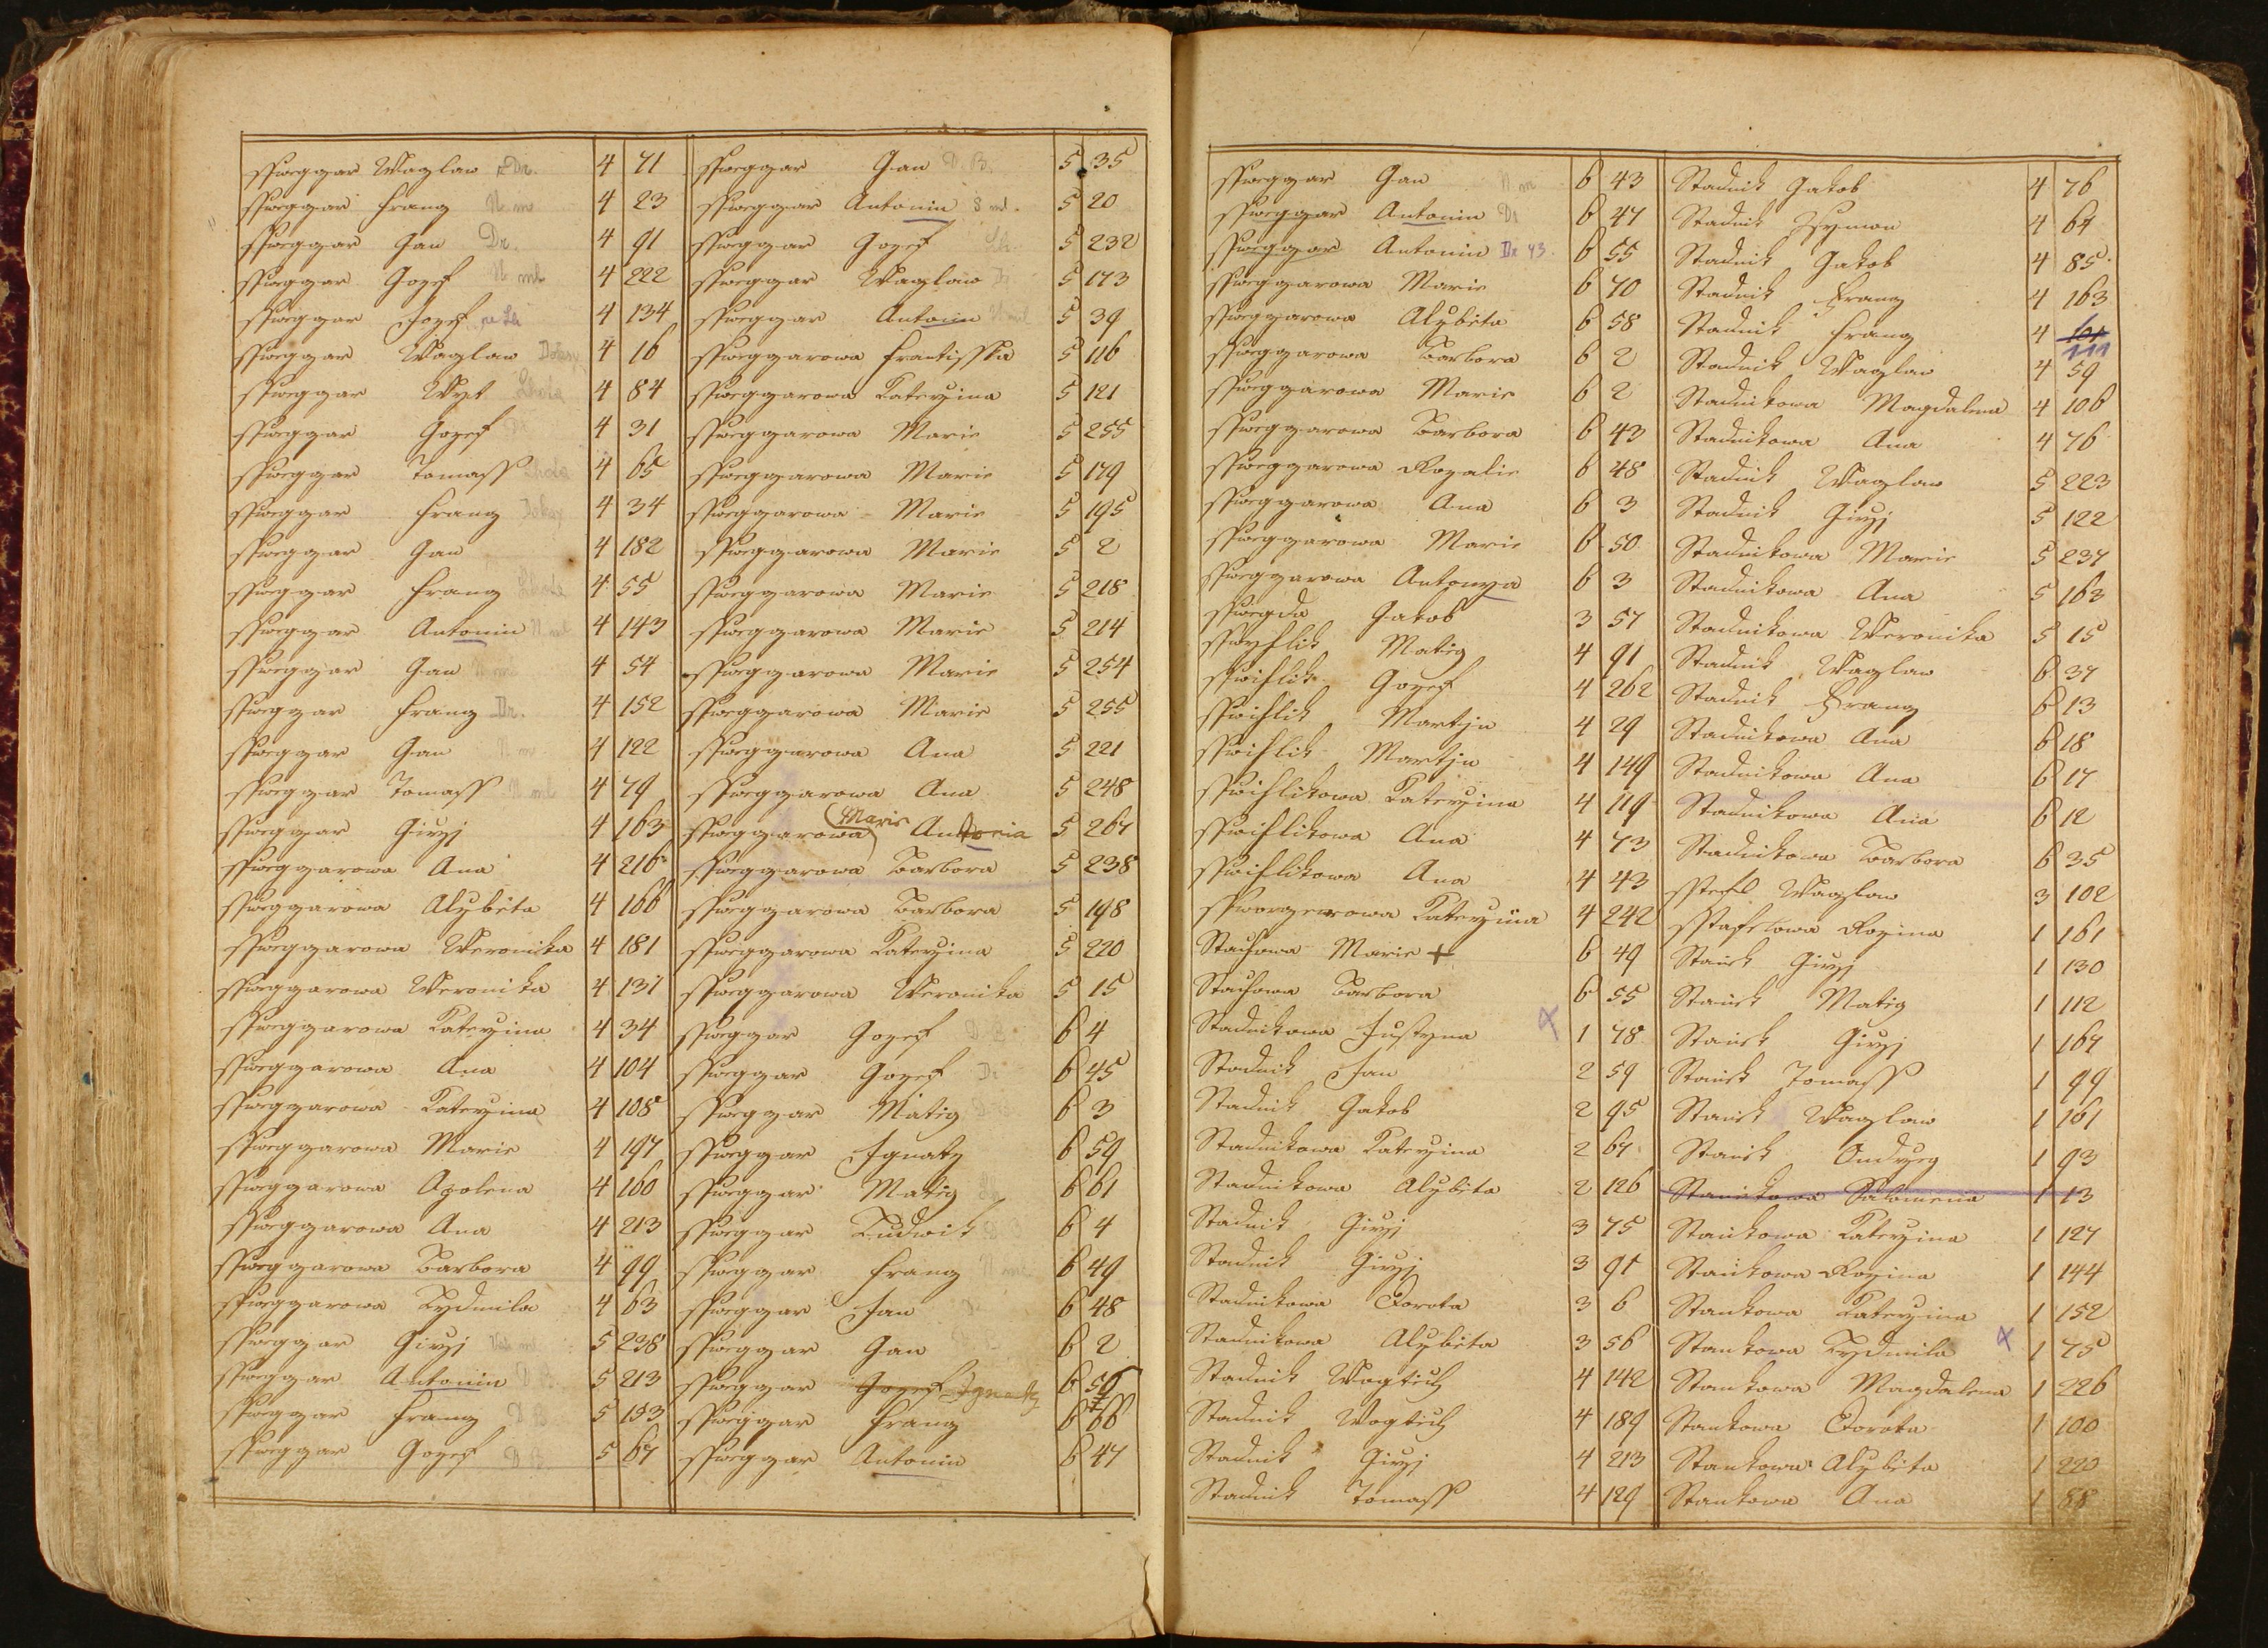 Ssweyzar Wazlaw Dr. 4 71
Sswegzar Franz N m 4 23
Sswegzar Gan Dr. 4 91
Sswegzar Gozef N ml 4 222
Sswegzar Jozef 4 134
Sswegzar Wazlaw 4 16
Sswegzar Wyt Lhota 4 84
Sswegzar Gozef 4 31
Sswegzar Tomass Lhota 4 65
Sswegzar Franz 4 34
Sswegzar Gan 4 182
Sswegzar Franz Lhota 4 55
Sswegzar Antonin N ml 4 143
Sswegzar Gan 4 54
Sswegzar Franz Dr. 4 152
Sswegzar Gan 4 122
Sswegzar Tomass N ml 4 79
Sswegzar Girzj 4 163
Sswegzarowa Ana 4 216
Sswegzarowa Alzbėta 4 166
Sswegzarowa Weronika 4 181
Sswegzarowa Weronika 4 131
Sswegzarowa Katerzina 4 34
Sswegzarowa Ana 4 104
Sswegzarowa Katerzina 4 108
Sswegzarowa Marie 4 197
Sswegzarowa Apolena 4 160
Sswegzarowa Ana 4 213
Sswegzarowa Barbora 4 99
Sswegzarowa Lydmila 4 63
Sswegzar Girzj 5 238
Sswegzar Antonin 5 213
Sswegzar Franz D B 5 153
Sswegzar Gozef D B 5 67
Sswegzar Gan D. B. 5 35
Sswegzar Antonin 8 ml. 5 20
Sswegzar Gozef 5 232
Sswegzar Wazlaw 5 173
Sswegzar Antonin 5 39
Sswegzarowa Frantisska 5 116
Sswegzarowa Katerzina 5 121
Sswegzarowa Marie 5 255
Sswegzarowa Marie 5 179
Sswegzarowa Marie 5 195
Sswegzarowa Marie 5 2
Sswegzarowa Marie 5 218
Sswegzarowa Marie 5 214
Sswegzarowa Marie 5 254
Sswegzarowa Marie 5 255
Sswegzarowa Ana 5 221
Sswegzarowa Ana 5 248
Sswegzarowa (Marie) Antonia 5 267
Sswegzarowa Barbora 5 238
Sswegzarowa Barbora 5 198
Sswegzarowa Katerzina 5 220
Sswegzarowa Weronika 5 15
Sswegzar Gozef 6 4
Sswegzar Gozef Dr 6 45
Sswegzar Matig 6 3
Sswegzar Ignatz 6 59
Sswegzar Matig 6 61
Sswegzar Ludwik 6 4
Sswegzar Franz 6 49
Sswegzar Jan 6 48
Sswegzar Gan 6 2
Sswegzar Gozef Ignatz 6
Sswegzar Franz 6 66
Sswegzar Antonin 6 47
Sswegzar Gan N m 6 43
Sswegzar Antonin Dr 6 47
Sswegzar Antonin Dr 43. 6 55
Sswegzarowa Marie 6 70
Sswegzarowa Alzbėta 6 58
Sswegzarowa Barbora 6 2
Sswegzarowa Marie 6 2
Sswegzarowa Barbora 6 43
Sswegzarowa Rozalie 6 48
Sswegzarowa Ana 6 3
Sswegzarowa Marie 6 50
Sswegzarowa Antonya 6 3
Sswegda Gakob 3 57
Sswihlik Matig 4 91
Sswihlik Gozef 4 262
Sswihlik Martjn 4 29
Sswihlik Martjn 4 149
Sswihlikowa Katerzina 4 119
Sswihlikowa Ana 4 73
Sswihlikowa Ana 4 43
Katerzina 4 242
Stachowa Marie + 6 49
Stachowa Barbora 6 55
Stadnikowa Justyna 1 78
Stadnik Jan 2 59
Stadnik Gakob 2 95
Stadnikowa Katerzina 2 67
Stadnikowa Alzbėta 2 126
Stadnik Girzj 3 75
Stadnik Girzj 3 91
Stadnikowa Dorota 3 6
Stadnikowa Alzbėta 3 56
Stadnik Wogtěch 4 142
Stadnik Wogtěch 4 189
Stadnik Girzj 4 213
Stadnik Tomass 4 129
Stadnik Gakob 4 76
Stadnik Ssymon 4 64
Stadnik Gakob 4 85
Stadnik Franz 4 163
Stadnik Franz 4 111
Stadnik Wazlaw 4 59
Stadnikowa Magdalena 4 106
Stadnikowa Ana 4 76
Stadnik Wazlaw 5 223
Stadnik Girzj 5 122
Stadnikowa Marie 5 237
Stadnikowa Ana 5 163
Stadnikowa Weronika 5 15
Stadnik Wazlaw 6 37
Stadnik Franz 6 13
Stadnikowa Ana 6 18
Stadnikowa Ana 6 17
Stadnikowa Ana 6 12
Stadnikowa Barbora 6 35
Wazlaw 3 102
Rozina 1 161
Staněk Girzj 1 130
Staněk Matig 1 112
Staněk Girzj 1 167
Staněk Tomass 1 99
Staněk Wazlaw 1 161
Staněk Ondrzeg 1 93
Stankowa Salomena 1 13
Stankowa Katerzina 1 127
Stankowa Rozina 1 144
Stankowa Katerzina 1 152
Stankowa Lydmila 1 75
Stankowa Magdalena 1 226
Stankowa Dorota 1 100
Stankowa Alzbėta 1 220
Stankowa Ana 1 88